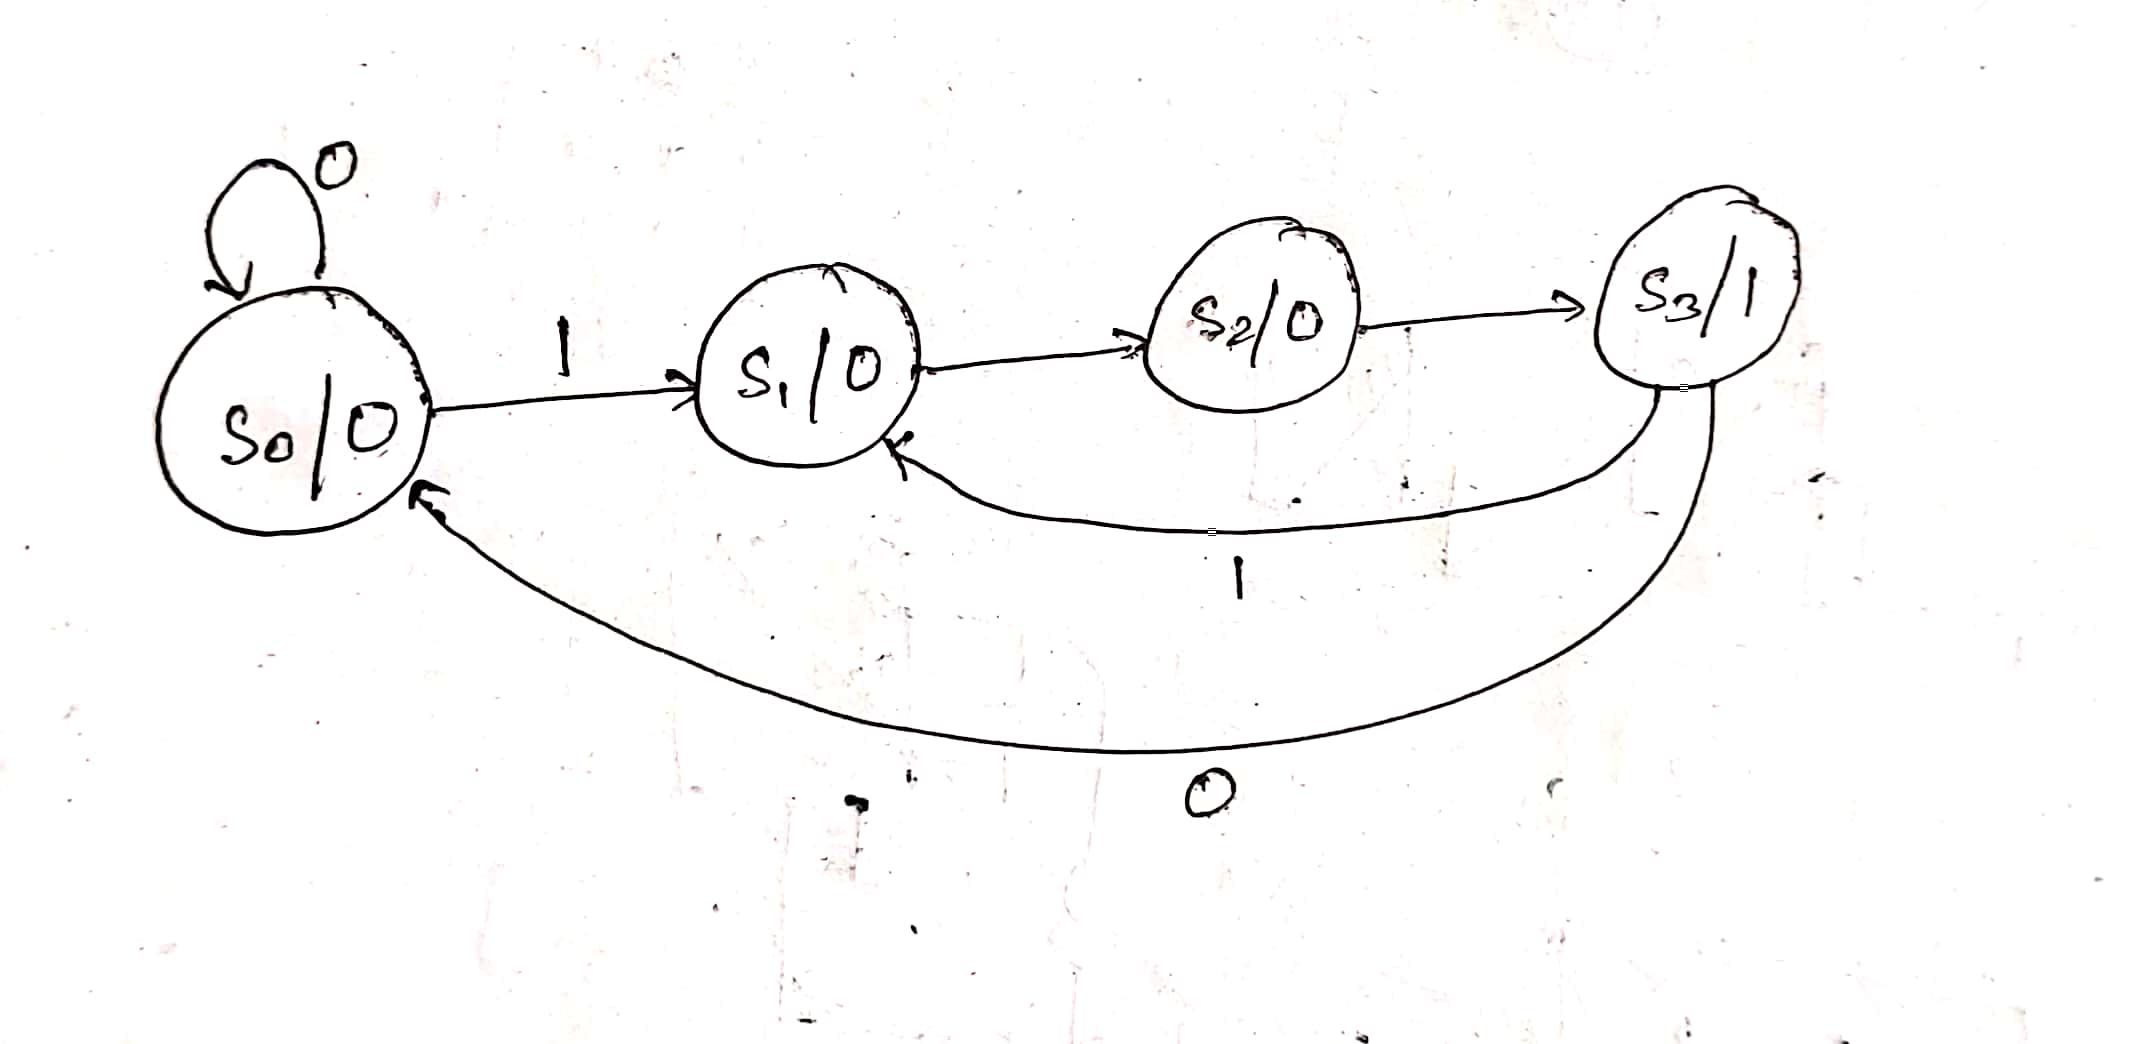 0
S0/0
1
S1/0
S2/0
S3/1
1
0